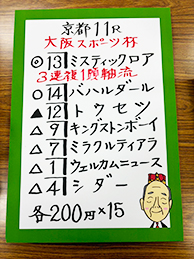 京都11R
大阪スポーツ杯
◎13ミスティックロア
3連複1頭軸流
○14バハルダール
▲12トウセン
△9キングストンボーイ
△7ミラクルティアラ
△1ウェルカムニュース
△4シダー
各200円×15